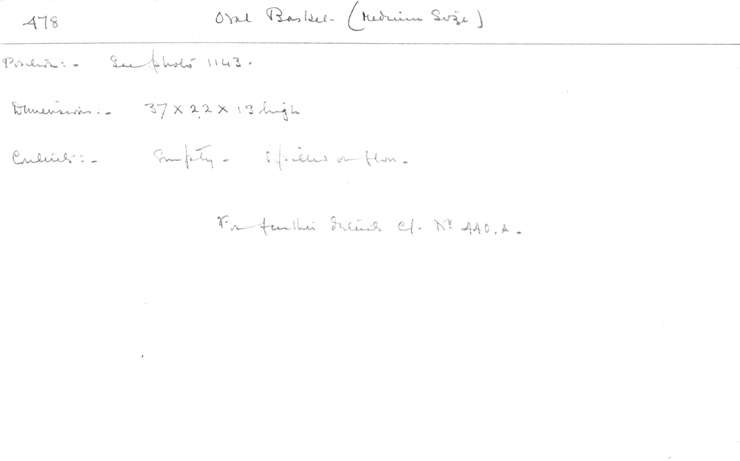 478 Oval Basket - (Medium Size)
Position :- See photo 1143.
Dimensions :- 37 x 22 x 13 high
Contents :- Empty - Spilled on floor -
For further details cf. Nº 440.A.